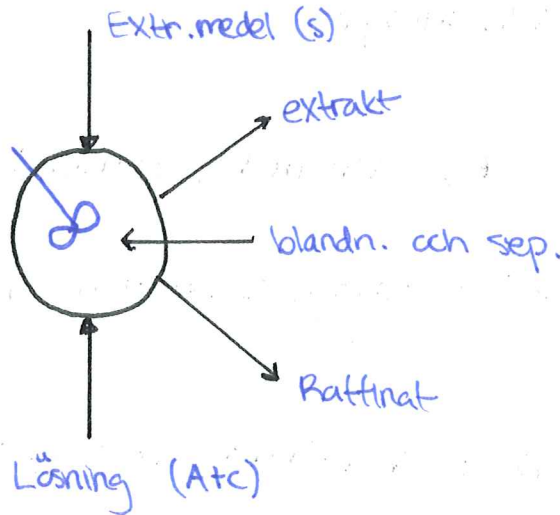 Extr.medel (s)
extrakt
blandn. och sep.
Raffinat
Lösning (A+C)